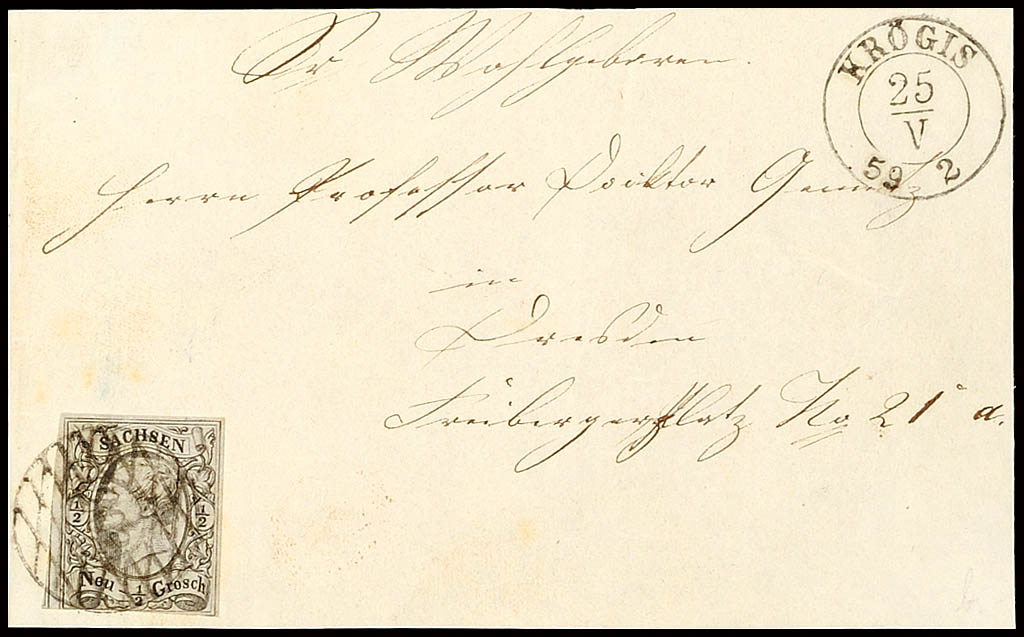 Sr Wohlgeboren.
KRÖGIS
25
V
59 2
Herrn Professor Docktor
in
Dresden
Freibergerplatz No 21 a.
SACHSEN
1/2 1/2
Neu- 1/2 Grosch